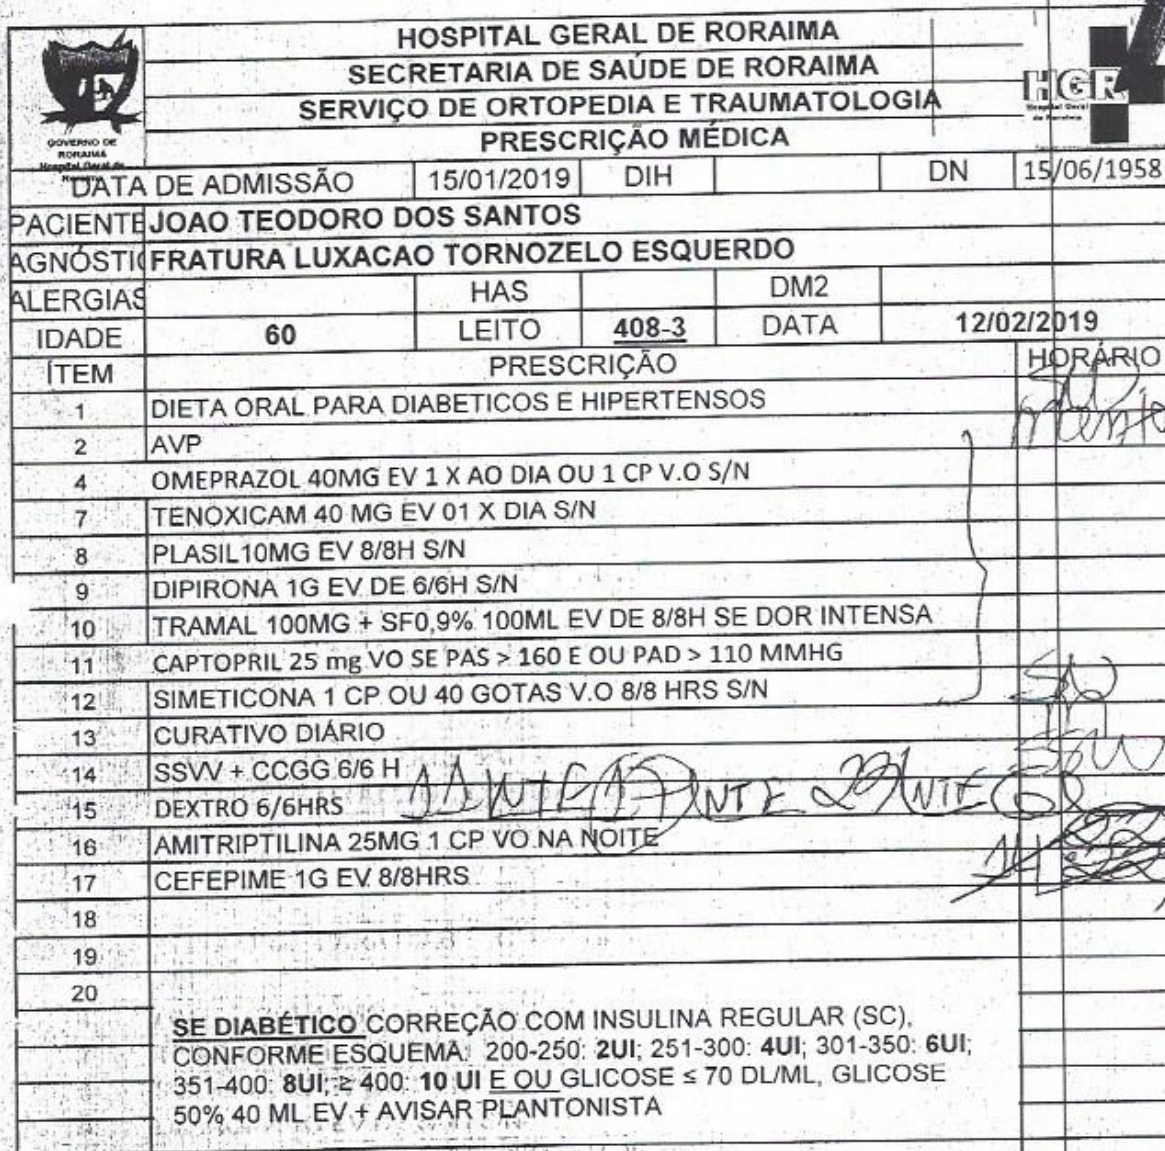 HOSPITAL GERAL DE RORAIMA
SECRETARIA DE SAÚDE DE RORAIMA
SERVIÇO DE ORTOPEDIA E TRAUMATOLOGIA
PRESCRIÇÃO MÉDICA
GOVERNO DE
RORAIMA
Hospital Geral de
HGR
Hospital Geral
de Roraima
DATA DE ADMISSÃO 15/01/2019 DIH DN 15/06/1958
PACIENTE JOAO TEODORO DOS SANTOS
AGNÓSTIC FRATURA LUXACAO TORNOZELO ESQUERDO
ALERGIAS HAS DM2
IDADE 60 LEITO 408-3 DATA 12/02/2019
ÍTEM PRESCRIÇÃO HORÁRIO
1 DIETA ORAL PARA DIABETICOS E HIPERTENSOS
2 AVP
4 OMEPRAZOL 40MG EV 1 X AO DIA OU 1 CP V.O S/N
7 TENOXICAM 40 MG EV 01 X DIA S/N
8 PLASIL10MG EV 8/8H S/N
9 DIPIRONA 1G EV DE 6/6H S/N
10 TRAMAL 100MG + SF0,9% 100ML EV DE 8/8H SE DOR INTENSA
11 CAPTOPRIL 25 mg VO SE PAS > 160 E OU PAD > 110 MMHG
12 SIMETICONA 1 CP OU 40 GOTAS V.O 8/8 HRS S/N
13 CURATIVO DIÁRIO
14 SSVV + CCGG 6/6 H
15 DEXTRO 6/6HRS
16 AMITRIPTILINA 25MG 1 CP VO NA NOITE
17 CEFEPIME 1G EV 8/8HRS
18
19
20
SE DIABÉTICO CORREÇÃO COM INSULINA REGULAR (SC),
CONFORME ESQUEMA: 200-250: 2UI; 251-300: 4UI; 301-350: 6UI;
351-400: 8UI; ≥ 400: 10 UI E OU GLICOSE ≤ 70 DL/ML, GLICOSE
50% 40 ML EV + AVISAR PLANTONISTA